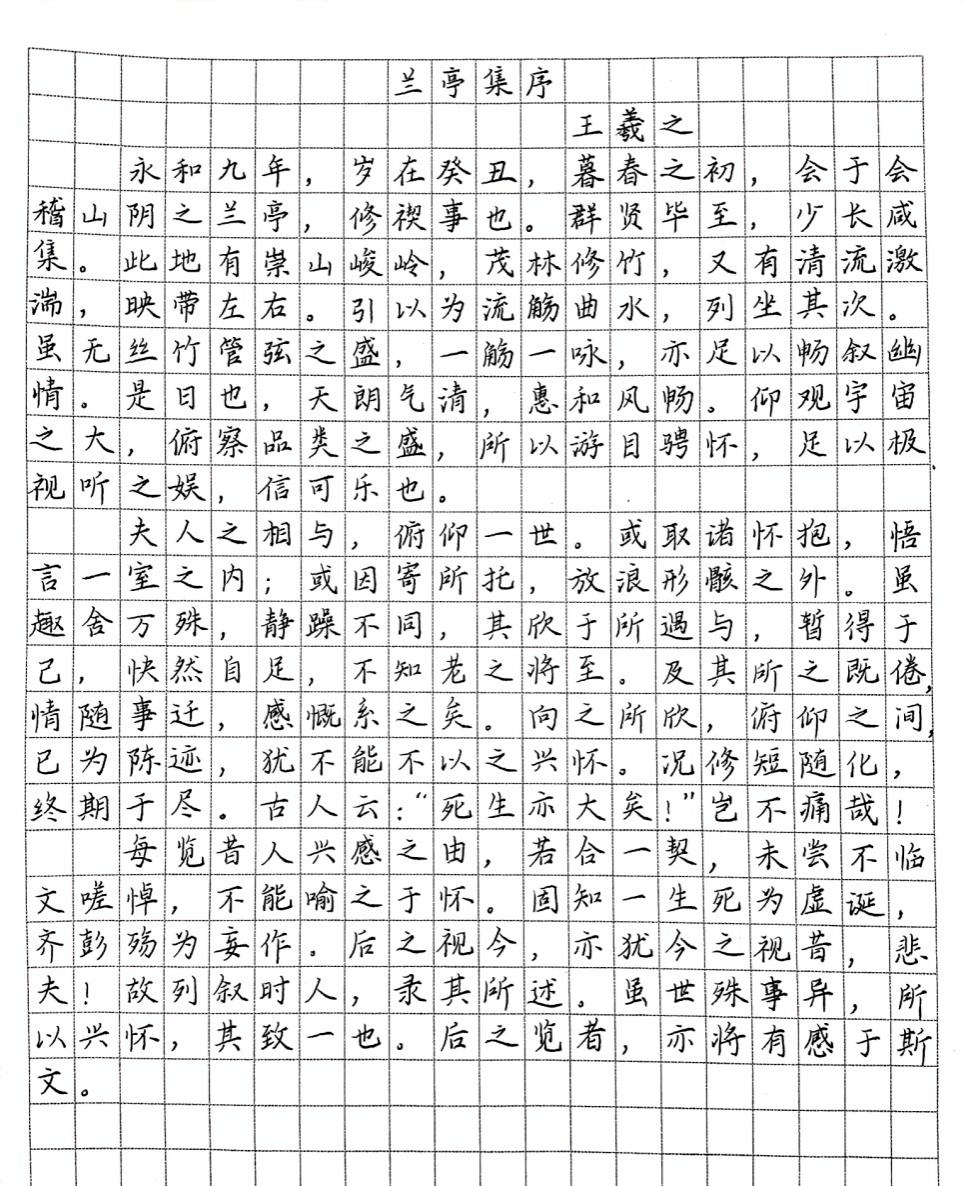 兰亭集序
王羲之
永和九年，岁在癸丑，暮春之初，会于会
稽山阴之兰亭，修禊事也。群贤毕至，少长咸
集。此地有崇山峻岭，茂林修竹，又有清流激
湍，映带左右。引以为流觞曲水，列坐其次。
虽无丝竹管弦之盛，一觞一咏，亦足以畅叙幽
情。是日也，天朗气清，惠和风畅。仰观宇宙
之大，俯察品类之盛，所以游目骋怀，足以极
视听之娱，信可乐也。
夫人之相与，俯仰一世。或取诸怀抱，悟
言一室之内；或因寄所托，放浪形骸之外。虽
趣舍万殊，静躁不同，其欣于所遇与，暂得于
己，快然自足，不知老之将至。及其所之既倦，
情随事迁，感慨系之矣。向之所欣，俯仰之间，
已为陈迹，犹不能不以之兴怀。况修短随化，
终期于尽。古人云：“死生亦大矣！”岂不痛哉！
每览昔人兴感之由，若合一契，未尝不临
文嗟悼，不能喻之于怀。固知一生死为虚诞，
齐彭殇为妄作。后之视今，亦犹今之视昔，悲
夫！故列叙时人，录其所述。虽世殊事异，所
以兴怀，其致一也。后之览者，亦将有感于斯
文。